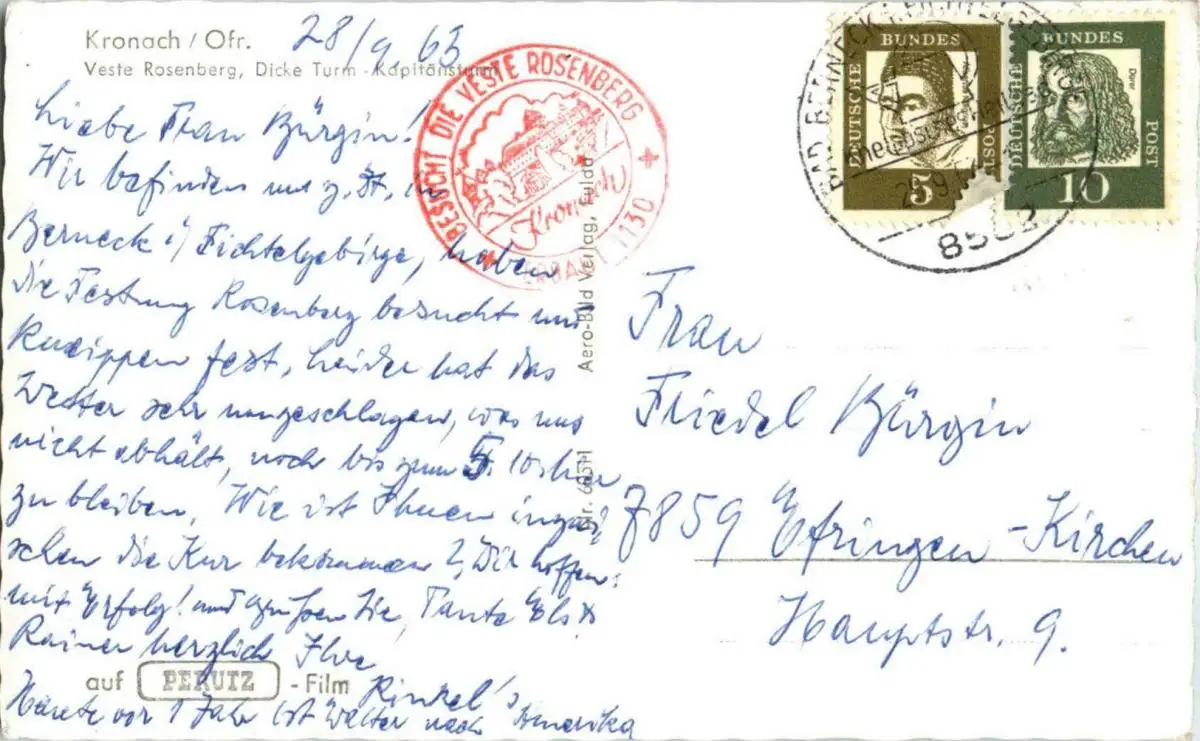 Kronach / Ofr.
28/9.63
Veste Rosenberg, Dicke Turm - Kapitänsturm
BESUCHT DIE VESTE ROSENBERG
Kronach
1130
BAD BERNECK I. FICHTELGEBIRGE
8582
DEUTSCHE BUNDES POST
5
DEUTSCHE BUNDES POST
Dürer
10
Liebe Frau Bürgin!
Wir befinden uns z. Zt. in
Berneck i/ Fichtelgebirge, haben
die Festung Rosenberg besucht und
kneippen fest, leider hat das
Wetter sehr umgeschlagen, was uns
nicht abhält, noch bis zum 5. 10. hier
zu bleiben. Wie ist Ihnen inzwi-
schen die Kur bekommen? Wir hoffen:
mit Erfolg! und grüßen Sie, Tante Els &
Rainer herzlich Ihre
Rinkel's
Heute vor 1 Jahr ist Walter nach Amerika
auf PERUTZ - Film
Aero-Bild Verlag, Fulda
Frau
Friedel Bürgin
7859 Efringen-Kirchen
Hauptstr. 9.